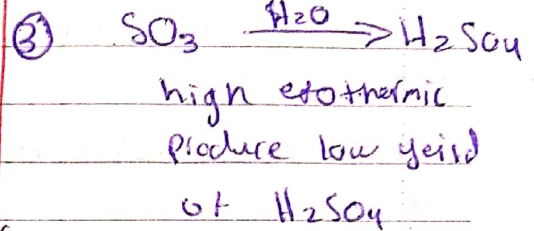 ③ SO₃ —H₂O→ H₂SO4
high exothermic
Produce low yeild
of H₂SO4